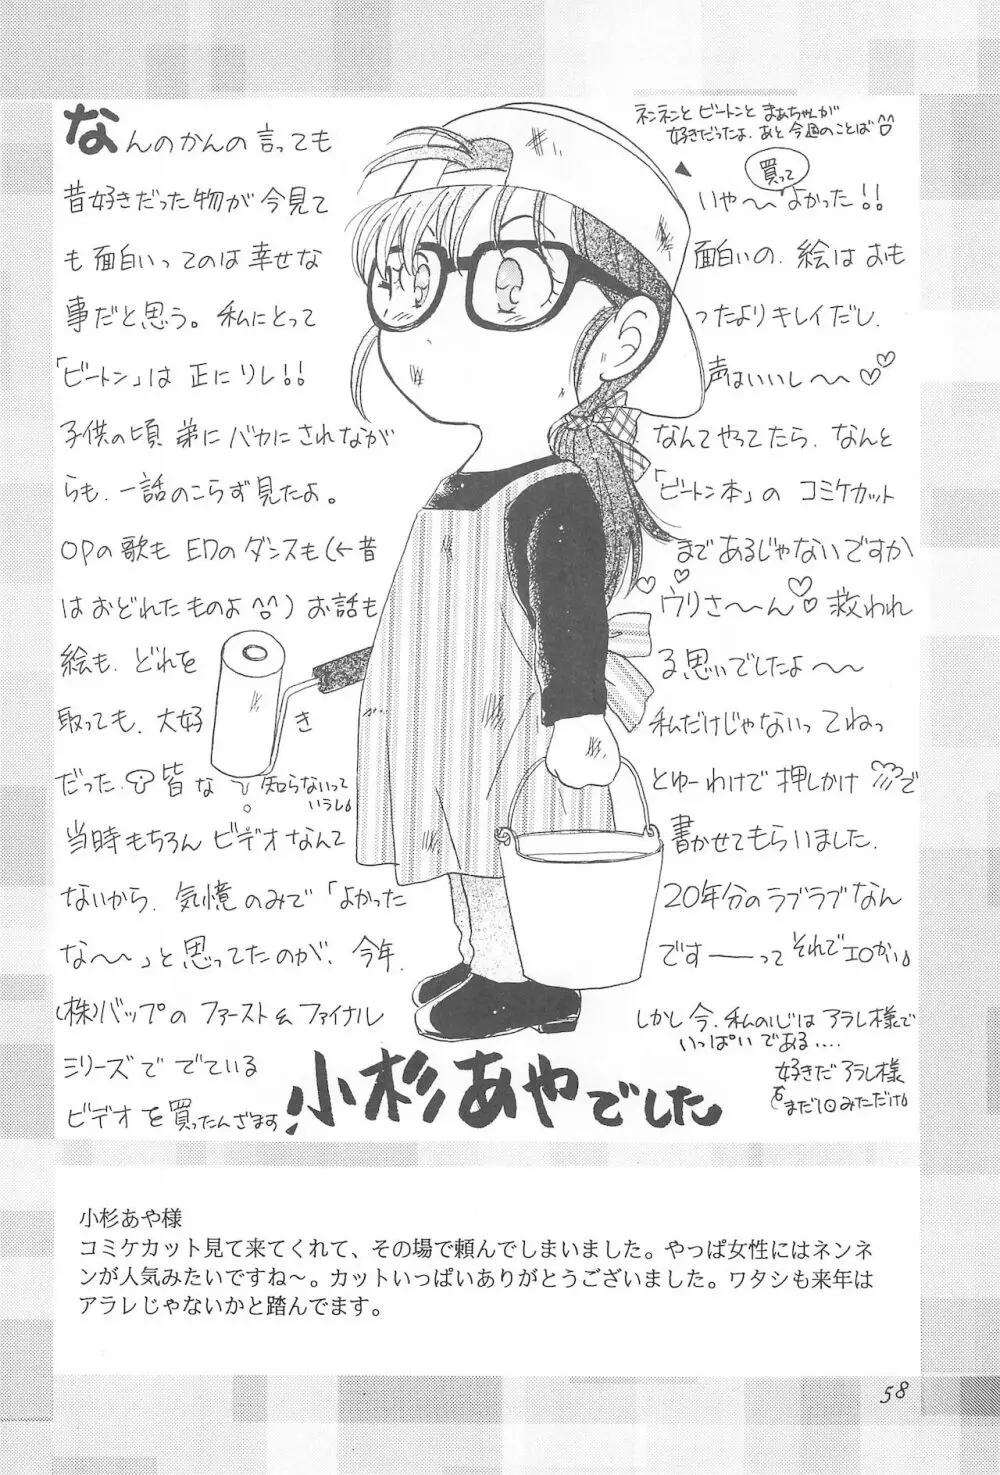 なんのかんの言っても
昔好きだった物が今見て
も面白いってのは幸せな
事だと思う。私にとって
「ビートン」は正にソレ!!
子供の頃弟にバカにされなが
らも、一話のこらず見たよ。
OPの歌も EDのダンスも(←昔
はおどれたものよ)お話も
絵も、どれを
取っても、大好き
だった。皆な知らないって
いうしね
当時もちろんビデオなんて
ないから、気憶のみで「よかった
な〜〜」と思ってたのが、今年、
(株)バップの ファースト&ファイナル
シリーズで でている
ビデオを買ったんざます!
ネンネンと ビートンと まぁちゃんが
好きだったよ。あと今週のことば
いや〜〜買ってよかった!!
面白いの、絵はおも
ったよりキレイだし、
声はいいし〜〜♡♡
なんてやってたら、なんと
「ビートン本」の コミケカット
まであるじゃないですか
♡♡ウリさ〜〜ん♡♡救われ
る思いでしたよ〜〜
私だけじゃないってねっ
とゆーわけで 押しかけで
書かせてもらいました。
20年分のラブラブなん
です——って それでエロかい
しかし今、私の心は アラレ様で
いっぱいである....
好きだアラレ様
をまだ1回みただけ
小杉あやでした
小杉あや様
コミケカット見て来てくれて、その場で頼んでしまいました。やっぱ女性にはネンネ
ンが人気みたいですね〜。カットいっぱいありがとうございました。ワタシも来年は
アラレじゃないかと踏んでます。
58